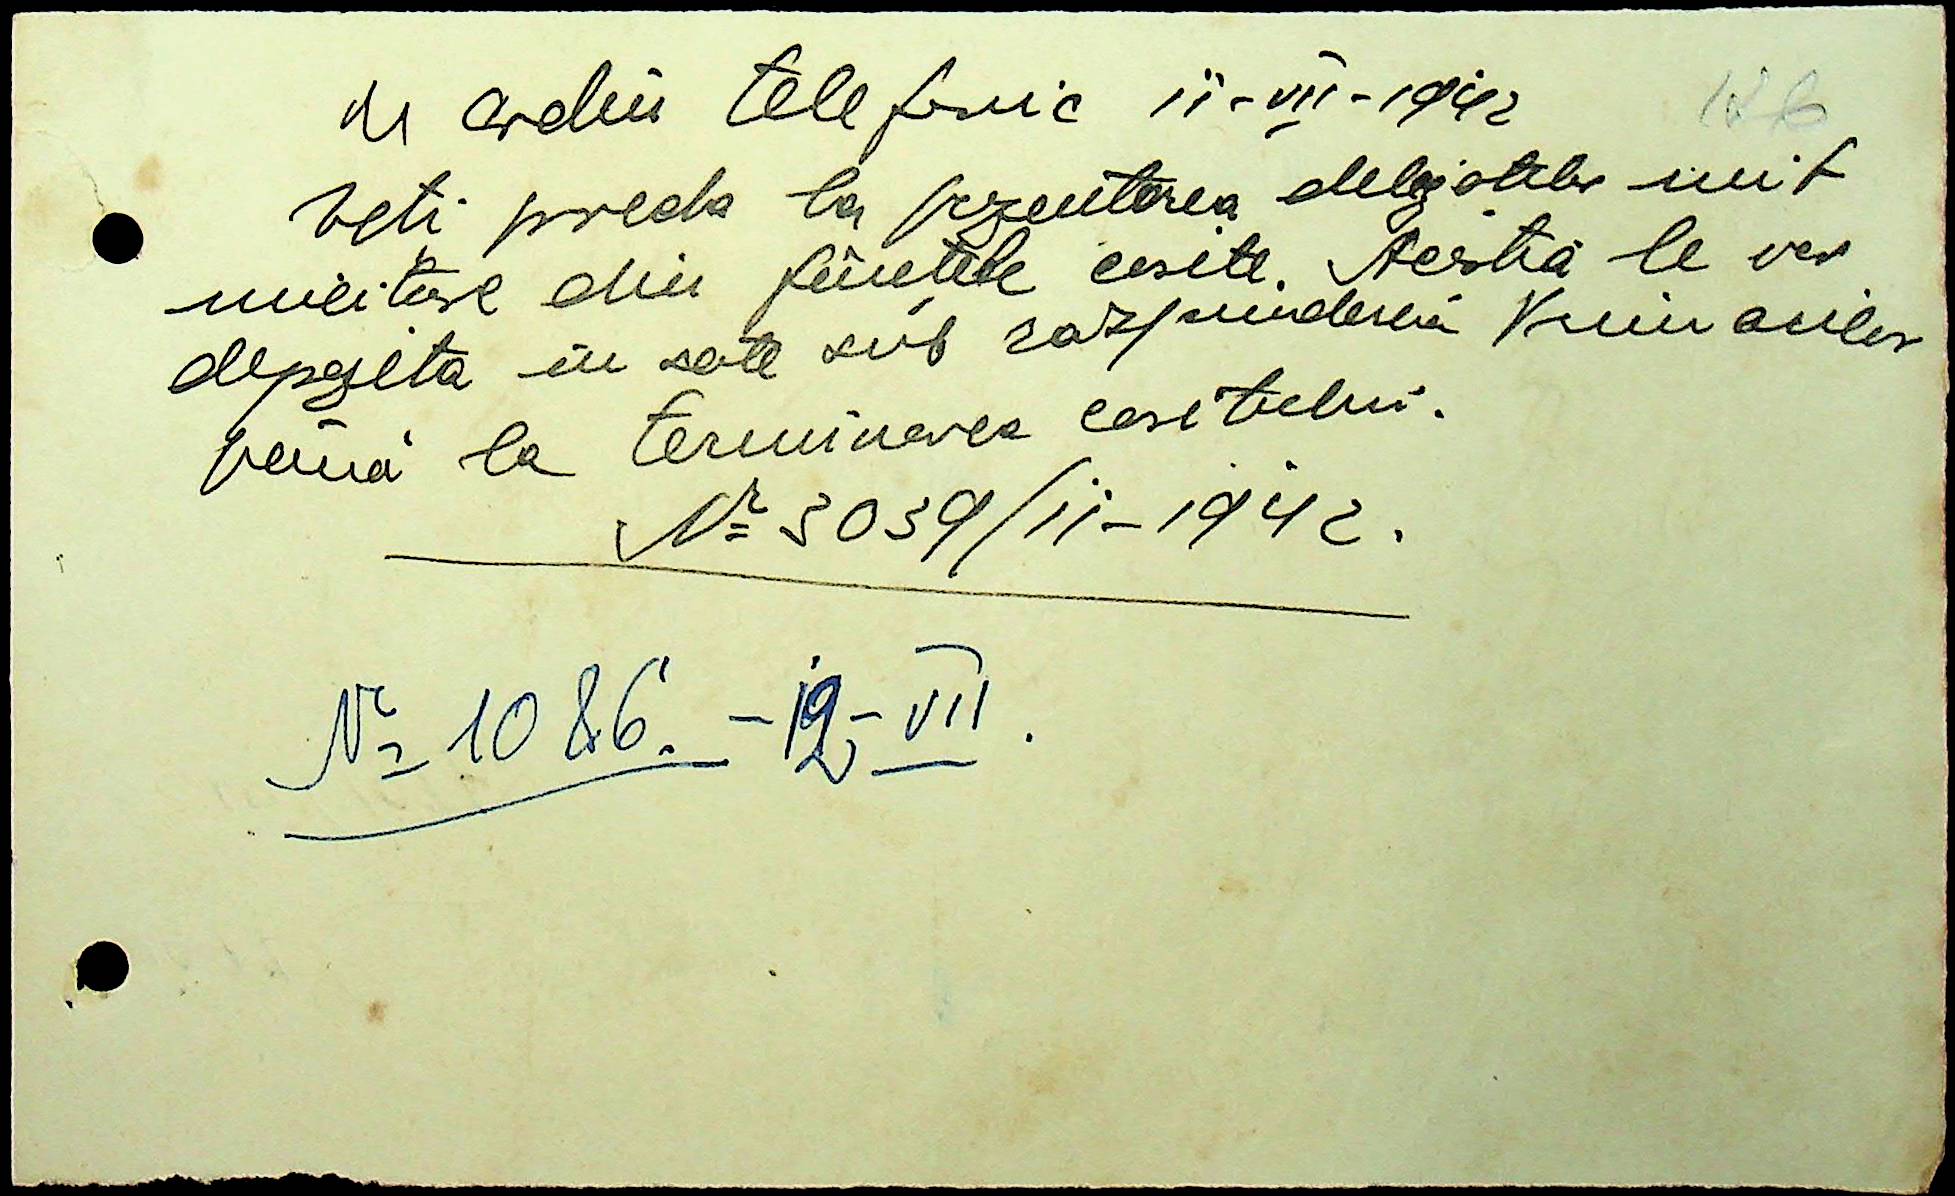 ordin telefonic 11-VII-1942
Veți preda la prezentarea delegatilor unit
militare din fânețele cosite. Aceștia le vor
depozita in sate sub răspunderea primariilor
până la terminarea cositului.
Nr 3039/11-1942.
Nr 1086. - 12 - VII.